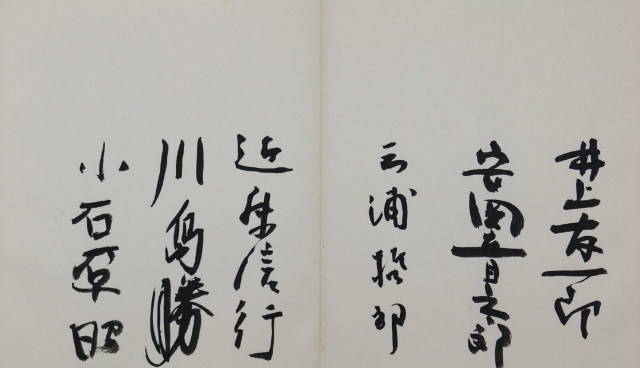 井上友一郎
安岡章太郎
三浦哲郎
近藤信行
川島勝
小石原昭